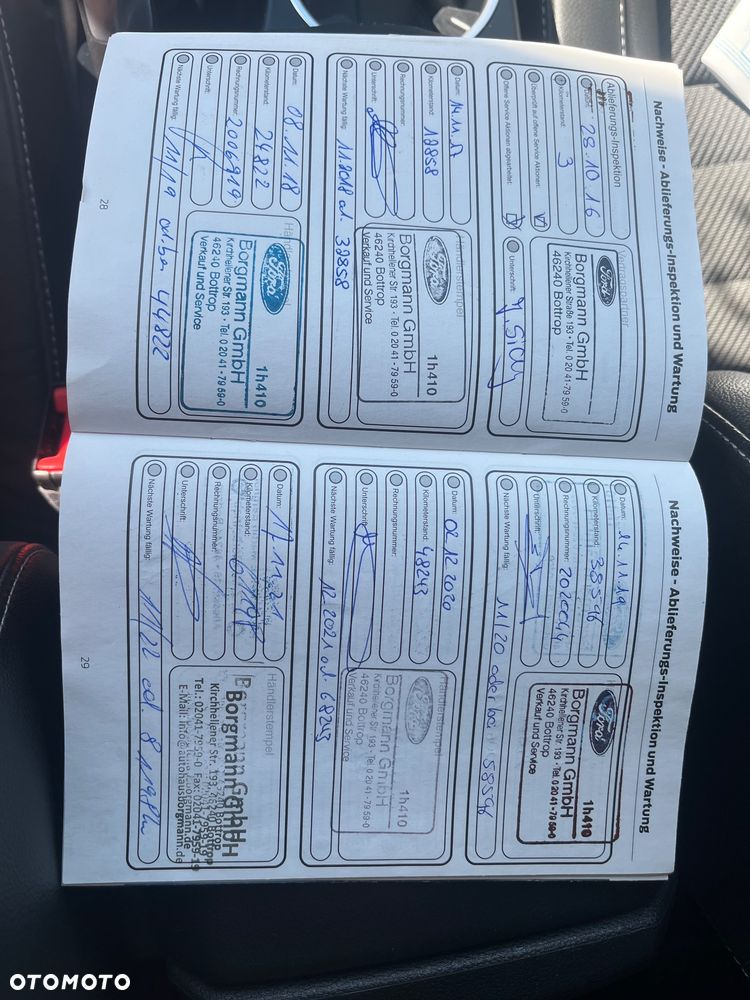 Nachweise - Ablieferungs-Inspektion und Wartung
Ablieferungs-Inspektion
28.10.16
Kilometerstand: 3
Überprüft auf offene Service Aktionen:
Offene Service Aktionen abgearbeitet:
Vertragspartner
Ford
Borgmann GmbH
Kirchhellener Straße 193 · Tel. 0 20 41-79 59-0
46240 Bottrop
Unterschrift:
Datum: 14.11.17
Kilometerstand: 12858
Rechnungsnummer:
Unterschrift:
Nächste Wartung fällig: 11.2018 od. 32858
Händlerstempel
Ford
1h410
Borgmann GmbH
Kirchhellener Str. 193 · Tel. 0 20 41-79 59-0
46240 Bottrop
Verkauf und Service
Datum: 08.11.18
Kilometerstand: 24822
Rechnungsnummer: 2006919
Unterschrift:
Nächste Wartung fällig: 11/19 od. bei 44822
Händlerstempel
Ford
1h410
Borgmann GmbH
Kirchhellener Str. 193 · Tel. 0 20 41-79 59-0
46240 Bottrop
Verkauf und Service
28
Nachweise - Ablieferungs-Inspektion und Wartung
Datum: 14.11.19
Kilometerstand: 38596
Rechnungsnummer:
Unterschrift:
Nächste Wartung fällig: 11/20 oder bei 58596
Ford
1h410
Borgmann GmbH
Kirchhellener Str. 193 · Tel. 0 20 41-79 59-0
46240 Bottrop
Verkauf und Service
Datum: 02.12.2020
Kilometerstand: 48243
Rechnungsnummer:
Unterschrift:
Nächste Wartung fällig: 12.2021 od. 68243
Händlerstempel
Ford
1h410
Borgmann GmbH
Kirchhellener Str. 193 · Tel. 0 20 41-79 59-0
46240 Bottrop
Verkauf und Service
Datum: 17.11.21
Kilometerstand:
Rechnungsnummer:
Unterschrift:
Nächste Wartung fällig: 11/22 od. 81198
Händlerstempel
Borgmann GmbH
Kirchhellener Str. 193
Bottrop
Tel.: 02041-7959-0 Fax: 02041-7959-19
E-Mail: info@autohausborgmann.de
29
OTOMOTO